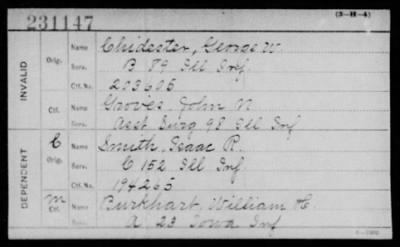 231147
(3-H-4)
INVALID
Orig.
Name Chidester, George W.
Serv. B 89 Ill Inf.
Ctf. No. 203605
Ctf.
Name Groves, John N
Serv. Asst Surg 98 Ill Inf
DEPENDENT
C
Orig.
Name Smith, Isaac R.
Serv. C 152 Ill Inf.
Ctf. No. 194265
M
Ctf.
Name Burkhart, William H.
A 23 Iowa Inf